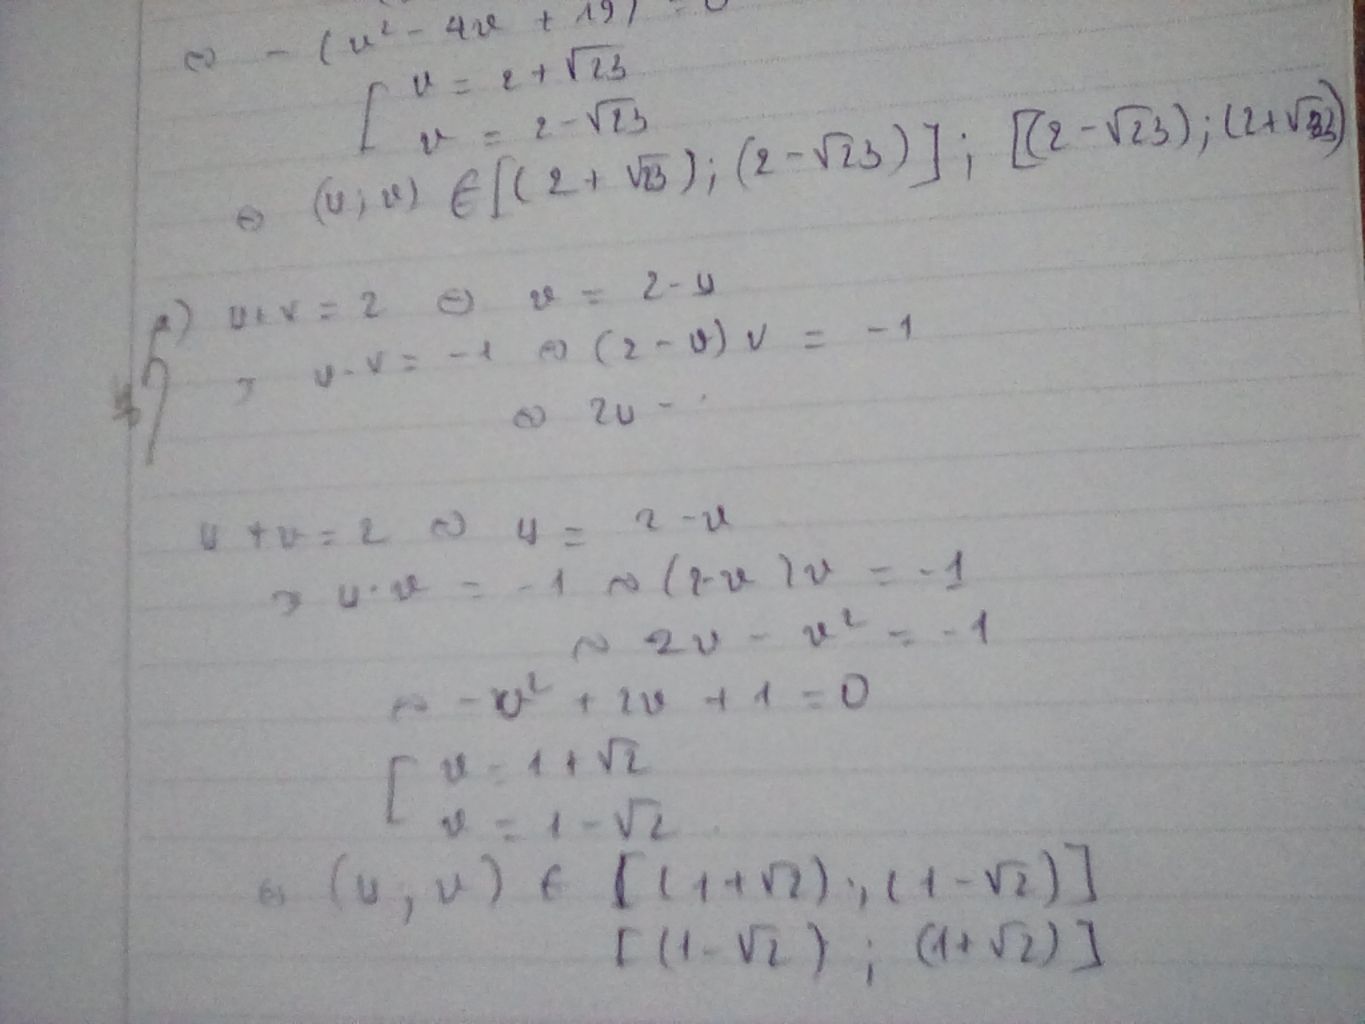 ⇔ - (v² - 4v + 19) = 0
[ v = 2 + √23
v = 2 - √23
⇔ (u; v) ∈ [(2 + √23); (2 - √23)]; [(2 - √23); (2 + √23)
u + v = 2 ⇔ v = 2 - u
⇒ u . v = -1 ⇔ (2 - u) v = -1
⇔ 2u -
u + v = 2 ⇔ u = 2 - v
⇒ u . v = -1 ⇔ (2 - v) v = -1
⇔ 2v - v² = -1
⇔ -v² + 2v + 1 = 0
[ v = 1 + √2
v = 1 - √2
⇔ (u; v) ∈ [(1 + √2); (1 - √2)]
[(1 - √2); (1 + √2)]